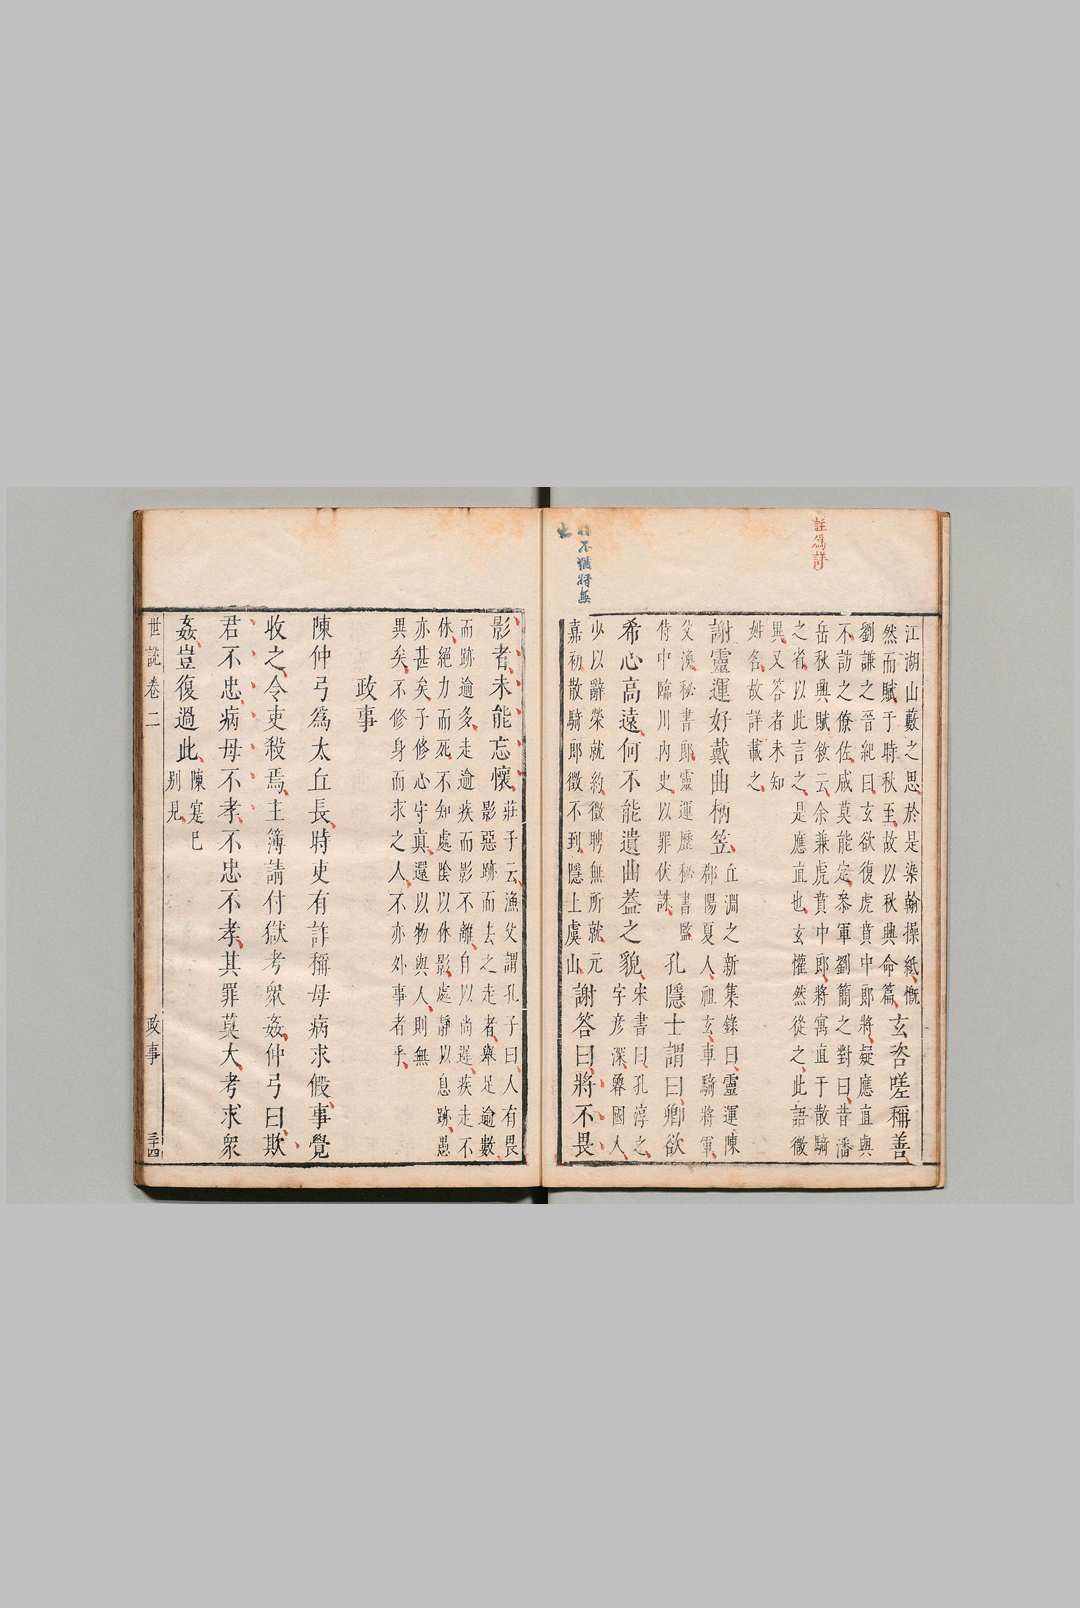 註為詳
江湖山藪之思於是染翰操紙慨
然而賦于時秋至故以秋興命篇
玄咨嗟稱善
劉謙之晉紀曰玄欲復虎賁中郎將疑應直與
不訪之僚佐咸莫能定叅軍劉簡之對曰昔潘
岳秋興賦敘云余兼虎賁中郎將寓直于散騎
之省以此言之是應直也玄懽然從之此語微
異又答者未知
姓名故詳載之
謝靈運好戴曲柄笠
丘淵之新集錄曰靈運陳
郡陽夏人祖玄車騎將軍
父渙秘書郎靈運歷秘書監
侍中臨川內史以罪伏誅
孔隱士謂曰卿欲
希心高遠何不能遺曲蓋之貌
宋書曰孔淳之
字彥深魯國人
少以辭榮就約徵聘無所就元
嘉初散騎郎徵不到隱上虞山
謝答曰將不畏
影者未能忘懷
莊子云漁父謂孔子曰人有畏
影惡跡而去之走者舉足逾數
而跡逾多走逾疾而影不離自以尚遲疾走不
休絕力而死不知處陰以休影處靜以息跡愚
亦甚矣子修心守真還以物與人則無
異矣不修身而求之人不亦外事者乎
政事
陳仲弓為太丘長時吏有詐稱母病求假事覺
收之令吏殺焉主簿請付獄考衆姦仲弓曰欺
君不忠病母不孝不忠不孝其罪莫大考求衆
姦豈復過此
陳寔已
別見
世說卷二
政事
三十四